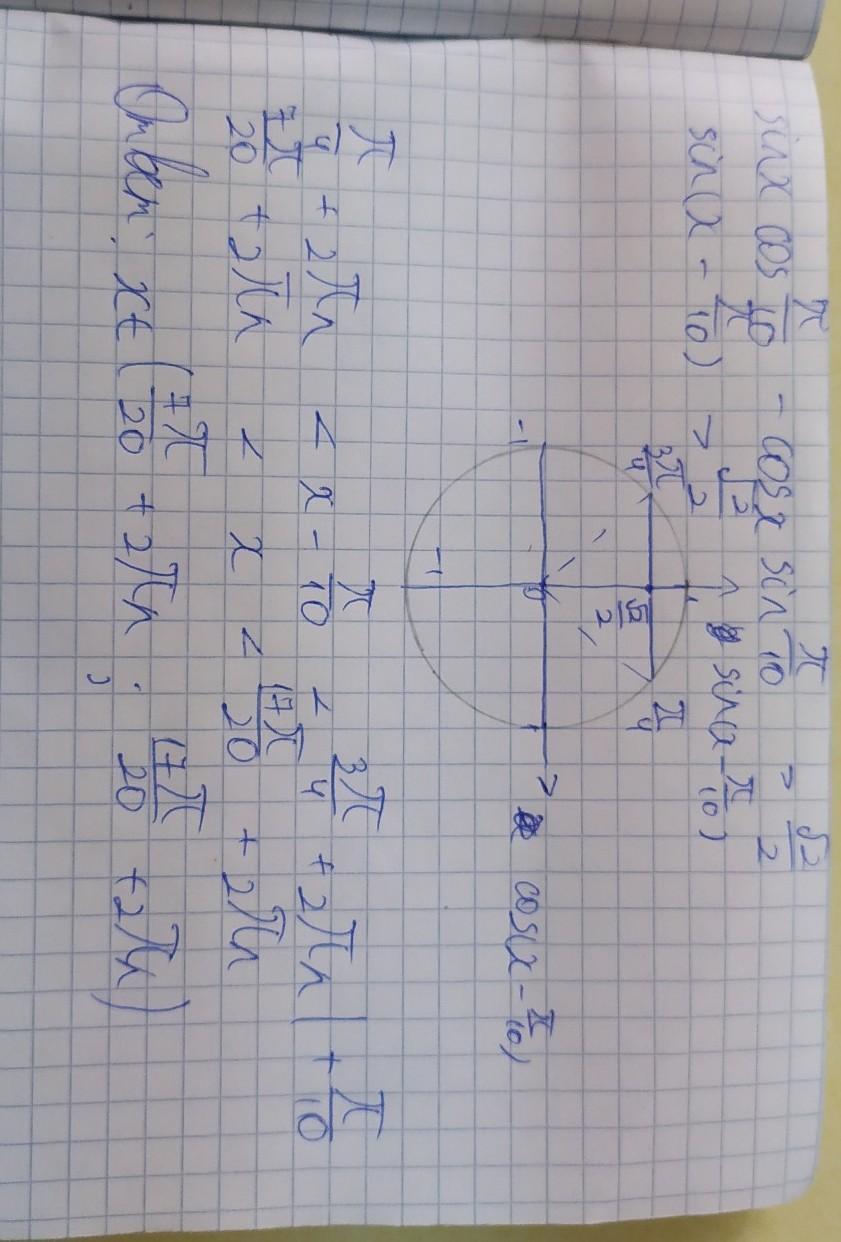 sinx cos π/10 - cosx sin π/10 > √2/2
sin(x - π/10) > √2/2
sin(x - π/10)
3π/4 √2/2 π/4
-1 0
cos(x - π/10)
-1
π/4 + 2πn < x - π/10 < 3π/4 + 2πn | + π/10
7π/20 + 2πn < x < 17π/20 + 2πn
Ответ: x∈ (7π/20 + 2πn ; 17π/20 + 2πn)